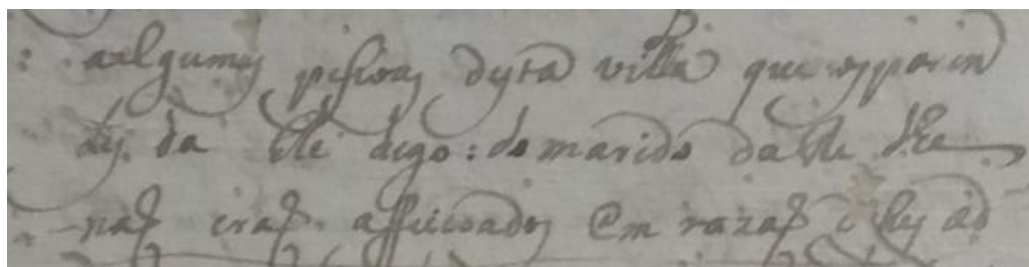 aalgumas pesoas desta villa que os paren
des da Re digo: do marido da Re lhe
naõ eraõ affeicoados Em razaõ